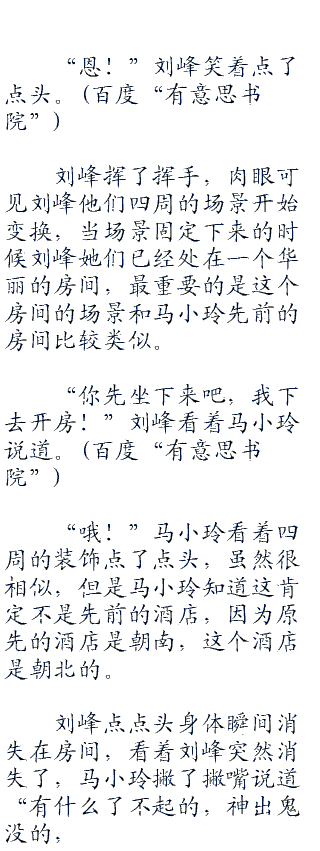 “恩！”刘峰笑着点了
点头。(百度“有意思书
院”)
刘峰挥了挥手，肉眼可
见刘峰他们四周的场景开始
变换，当场景固定下来的时
候刘峰她们已经处在一个华
丽的房间，最重要的是这个
房间的场景和马小玲先前的
房间比较类似。
“你先坐下来吧，我下
去开房！”刘峰看着马小玲
说道。(百度“有意思书
院”)
“哦！”马小玲看着四
周的装饰点了点头，虽然很
相似，但是马小玲知道这肯
定不是先前的酒店，因为原
先的酒店是朝南，这个酒店
是朝北的。
刘峰点点头身体瞬间消
失在房间，看着刘峰突然消
失了，马小玲撇了撇嘴说道
“有什么了不起的，神出鬼
没的，